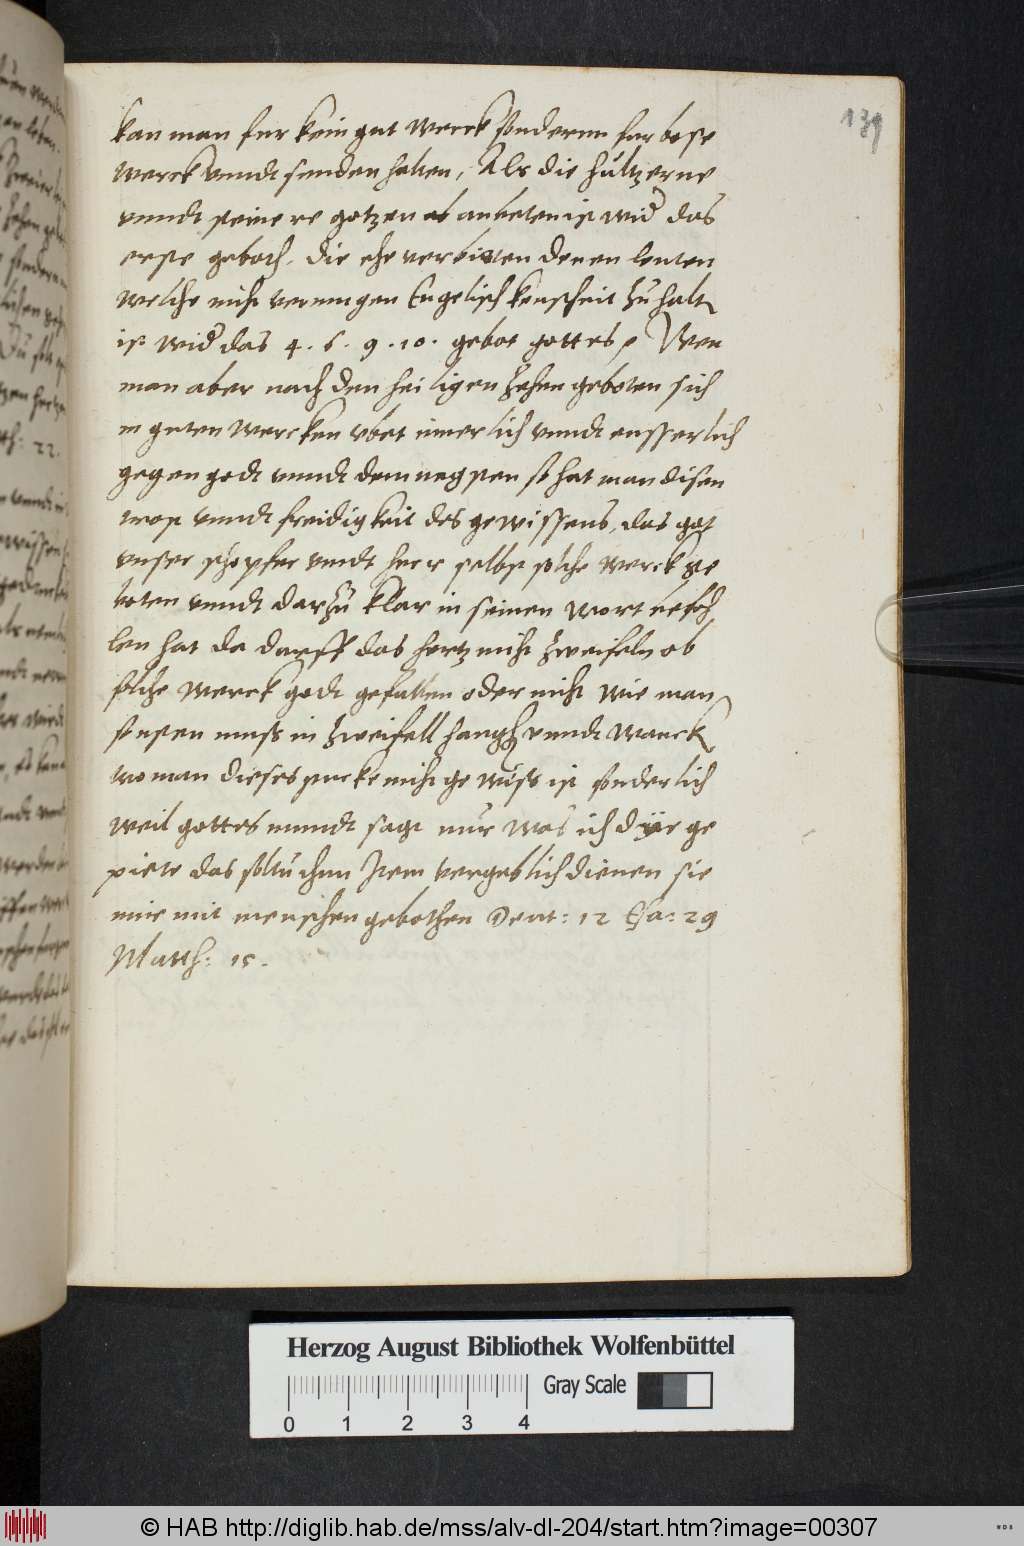 139
kan man fur kein gut werck sonderen fur bose
werck vnndt sunden halten, Als die hultzerne
vnndt steinere gotzen anbeten ist wid' das
erste geboth. die ehe verbieten denen leuten
welche nicht vermugen Engelisch keuscheit zu halt
ist wid' das 4. 6. 9. 10. gebot gottes, Wen
man aber nach den heiligen zehen geboten sich
in guten wercken vbet innerlich vnndt eusserlich
gegen godt vnndt dem negsten so hat man disen
trost vnndt freidigkeit des gewissens, das got
vnser schopfer vnndt herr selbst solche werck ge
boten vnndt darzu klar in seinen wort befoh
len hat da darff das hertz nicht zweifeln ob
solche werck godt gefallen oder nicht wie man
sonsten muss in zweifell hang vnndt wanck
wo man dieses stucke nicht gewiss ist sonderlich
weil gottes mundt sagt nur was ich dyr ge
piete das soltu thun Item vergeblich dienen sie
mir mit menschen gebothen Deut: 12 Esa: 29
Matth: 15.
22.
Herzog August Bibliothek Wolfenbüttel
Gray Scale
0 1 2 3 4
© HAB http://diglib.hab.de/mss/alv-dl-204/start.htm?image=00307